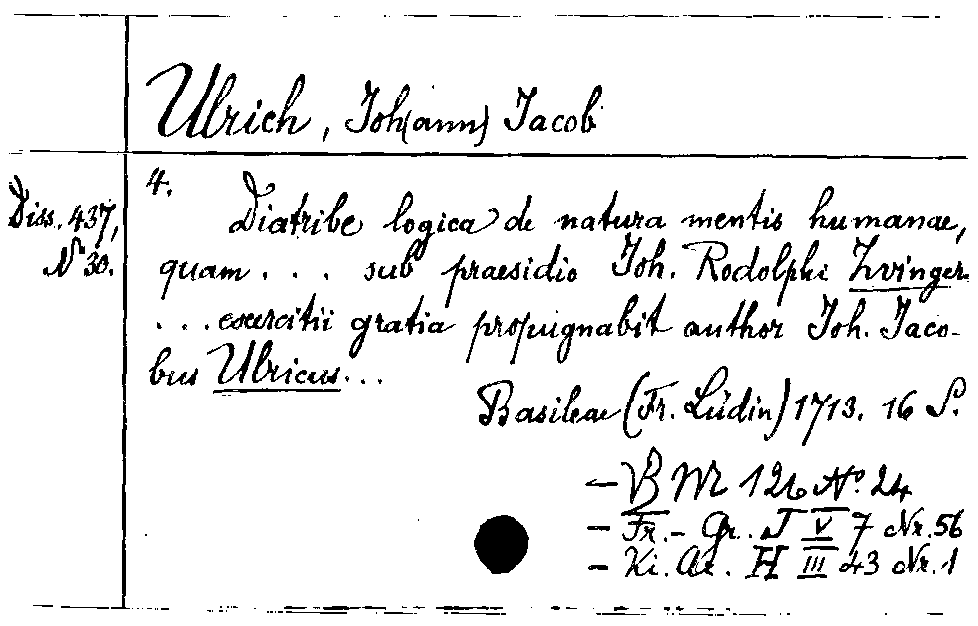 Ulrich, Joh(ann) Jacob
Diss. 437,
No 30.
4.
Diatribe logica de natura mentis humanae,
quam . . . sub praesidio Joh. Rodolphi Zvinger
. . . exercitii gratia propugnabit author Joh. Jaco-
bus Ulricus...
Basileae (Fr. Lüdin) 1713. 16 S.
- VB M 126 No. 24
- Fr.- Gr. J V 7 Nr. 56
- Ki. Ar. H III 43 Nr. 1